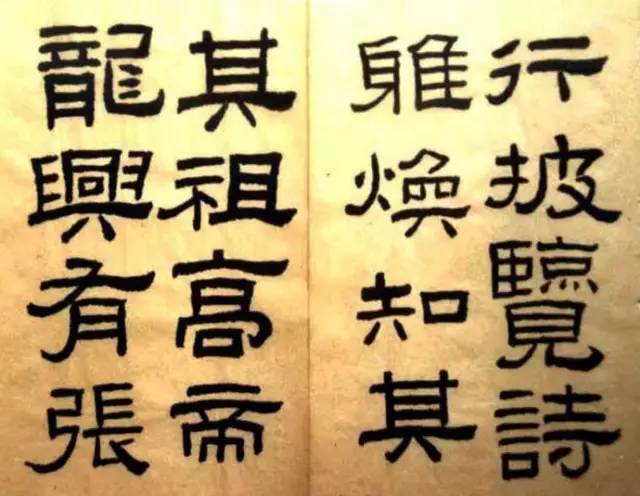 行披覽詩
煥知其
其祖高帝
龍興有張